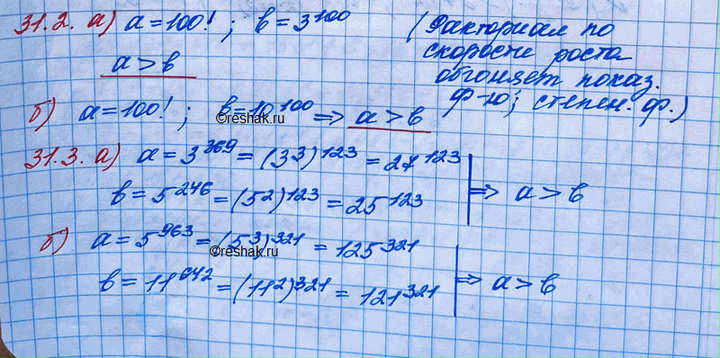 31.2. а) a=100! ; b=3^100 (Факториал по
скорости роста
a>b обгоняет показ.
ф-ю; степен. ф.)
б) a=100! ; b=10^100 => a>b
©reshak.ru
31.3. а) a=3^369=(3^3)^123=27^123
b=5^246=(5^2)^123=25^123 => a>b
б) a=5^963=(5^3)^321=125^321
©reshak.ru
b=11^642=(11^2)^321=121^321 => a>b